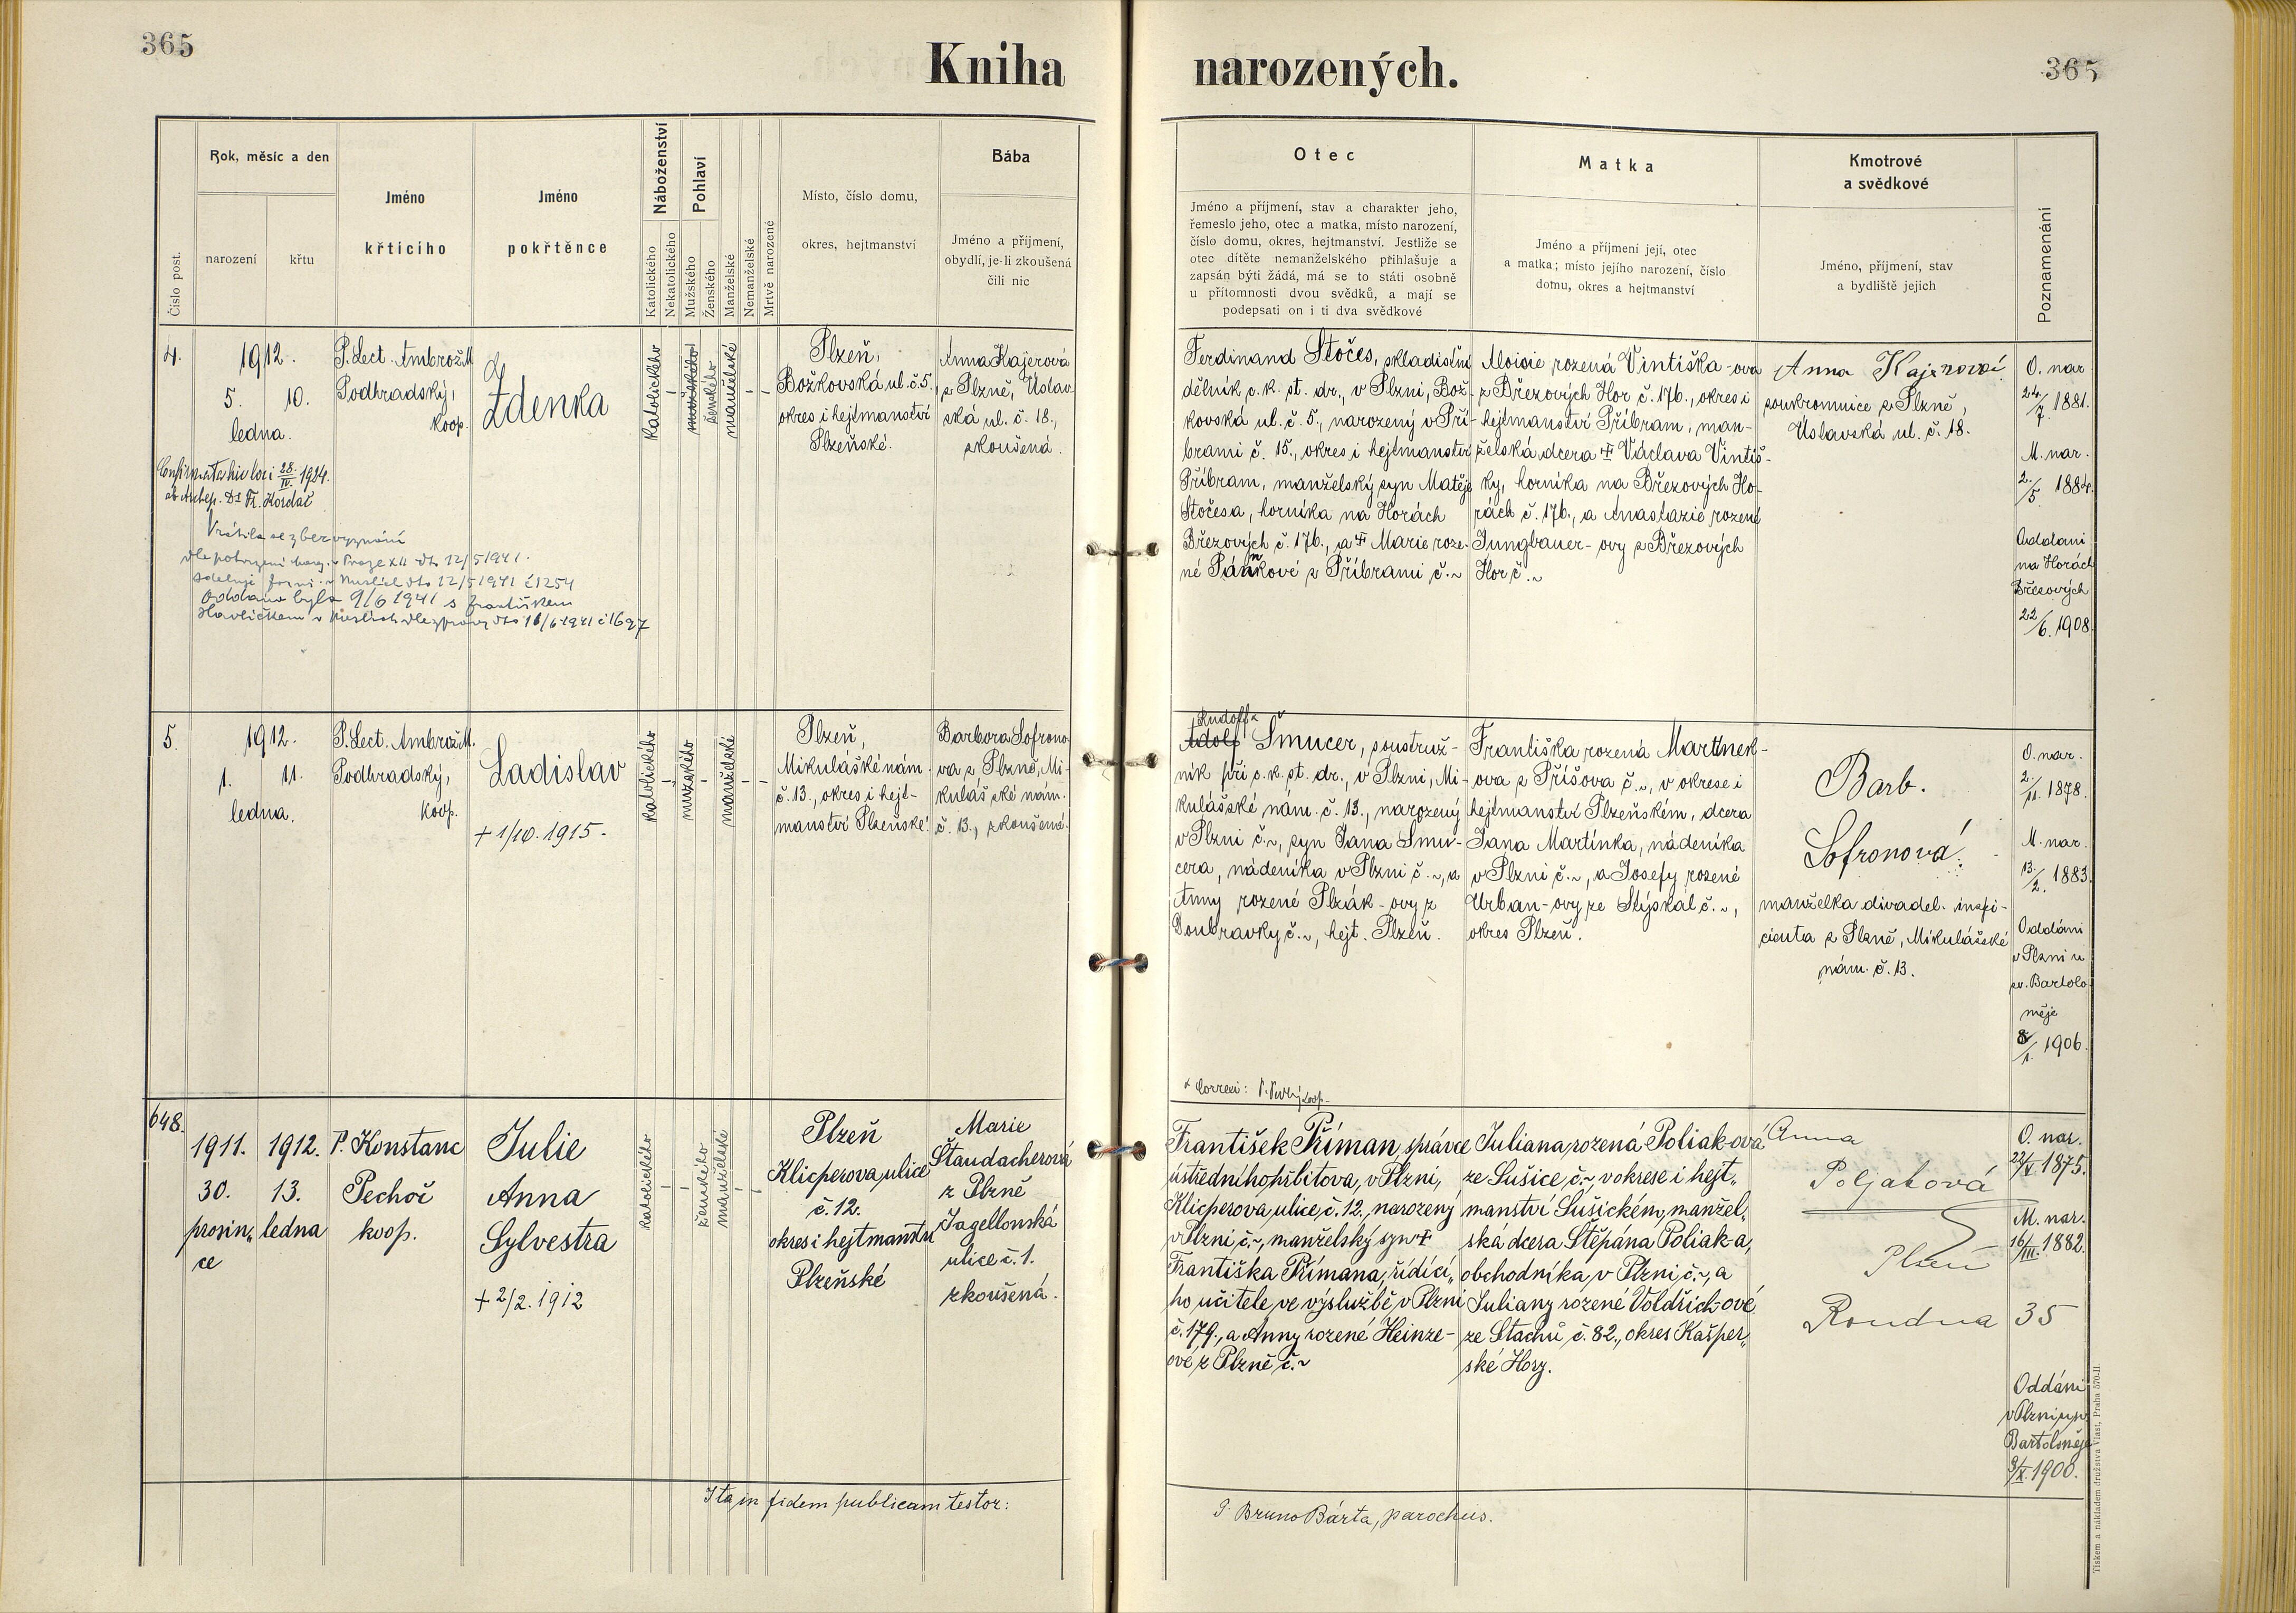 365
Kniha narozených.
365
Číslo post.
Rok, měsíc a den
narození
křtu
Jméno
křtícího
Jméno
pokřtěnce
Náboženství
Katolického
Nekatolického
Pohlaví
Mužského
Ženského
Manželské
Nemanželské
Mrtvě narozené
Místo, číslo domu,
okres, hejtmanství
Bába
Jméno a příjmení,
obydlí, je-li zkoušená
čili nic
Otec
Jméno a příjmení, stav a charakter jeho,
řemeslo jeho, otec a matka, místo narození,
číslo domu, okres, hejtmanství. Jestliže se
otec dítěte nemanželského přihlašuje a
zapsán býti žádá, má se to státi osobně
u přítomnosti dvou svědků, a mají se
podepsati on i ti dva svědkové
Matka
Jméno a příjmení její, otec
a matka; místo jejího narození, číslo
domu, okres a hejtmanství
Kmotrové
a svědkové
Jméno, příjmení, stav
a bydliště jejich
Poznamenání
4.
1912.
5. 10.
ledna.
P. Lect. Ambrož M.
Podhradský,
koop.
Zdenka
katolického
–
mužského
ženského
manželské
– –
Plzeň,
Božkovská ul. č. 5.,
okres i hejtmanství
Plzeňské.
Anna Kajerová
z Plzně, Úslav-
ská ul. č. 18.,
zkoušená.
28./IV. 1924.
ab Archiep. Dr Fr. Kordač
Vrátila se z bezvyznání
12/5 1941.
12/5 1941 č 1254
Oddána byla 9/6 1941 s Františkem
Havlíčkem v Nuslích dle zprávy dto 16/6 1941 č 1697
Ferdinand Stočes, skladištní
dělník c. k. st. dr., v Plzni, Bož-
kovská ul. č. 5., narozený v Pří-
brami č. 15., okres i hejtmanství
Příbram, manželský syn Matěje
Stočesa, horníka na Horách
Březových č. 176., a † Marie roze-
né Pánkové z Příbrami č. ~
Aloisie rozená Vintiška-ova
z Březových Hor č. 176., okres i
hejtmanství Příbram, man-
želská dcera † Václava Vintiš-
ky, horníka na Březových Ho-
rách č. 176., a Anastazie rozené
Jungbauer-ovy z Březových
Hor č. ~
Anna Kajerová
soukromnice z Plzně,
Úslavská ul. č. 18.
O. nar.
24./7. 1881.
M. nar.
2./5. 1884.
Oddáni
na Horách
Březových
22/6. 1908.
5.
1912.
1. 11.
ledna.
P. Lect. Ambrož M.
Podhradský,
koop.
Ladislav
+ 1/10. 1915.
katolického
–
mužského
–
manželské
– –
Plzeň,
Mikulášské nám.
č. 13., okres i hejt-
manství Plzeňské.
Barbora Sofrono-
va z Plzně, Mi-
kulášské nám.
č. 13., zkoušená.
Rudolf x
Adolf Šmucer, soustruž-
ník při c. k. st. dr., v Plzni, Mi-
kulášské nám. č. 13., narozený
v Plzni č. ~, syn Jana Šmu-
cera, nádeníka v Plzni č. ~, a
Anny rozené Plzák-ovy z
Doubravky č. ~, hejt. Plzeň.
x Correxi: P. koop.
Františka rozená Martínek-
ova z Příšova č. ~, v okrese i
hejtmanství Plzeňském, dcera
Jana Martínka, nádeníka
v Plzni č. ~, a Josefy rozené
Urban-ovy ze Stýskal č. ~,
okres Plzeň.
Barb.
Sofronová.
manželka divadel. inspi-
cienta z Plzně, Mikulášské
nám. č. 13.
O. nar.
2./11. 1878.
M. nar.
13./2. 1883.
Oddáni
v Plzni u
sv. Bartolo-
měje
8/1. 1906.
648.
1911. 1912.
30. 13.
prosin„ ledna
ce
P. Konstanc
Pechoč
koop.
Julie
Anna
Sylvestra
+ 2/2. 1912
katolického
–
–
ženského
manželské
– –
Plzeň
Klicperova ulice
č. 12.
okres i hejtmanství
Plzeňské
Marie
Štaudacherová
z Plzně
Jagellonská
ulice č. 1.
zkoušená.
František Příman, správce
ústředního hřbitova, v Plzni,
Klicperova ulice, č. 12., narozený
v Plzni č. ~, manželský syn †
Františka Přímana, řídící„
ho učitele ve výslužbě v Plzni
č. 179., a Anny rozené Heinze-
ové z Plzně č. ~
Juliana rozená Poliak-ová
ze Sušice, č. ~, v okrese i hejt„
manství Sušickém, manžel„
ská dcera Štěpána Poliak-a,
obchodníka, v Plzni, č. ~, a
Juliany rozené Voldřich-ové
ze Stachů č. 82., okres Kašper„
ské Hory.
Anna
Poljaková
Plzeň
Roudna 35
O. nar.
22/V. 1875.
M. nar.
16/III. 1882.
Oddáni
v Plzni u sv.
Bartoloměje
9/X. 1900.
Ita in fidem publicam testor:
P. Bruno Bárta, parochus.
Tiskem a nákladem družstva Vlast, Praha 570-II.